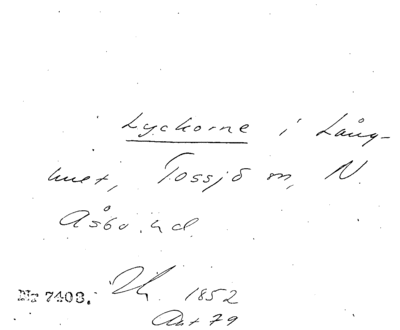 Lyckorne i Lång-
huset, Tossjö sn, N.
Åsbo hd.
Nr 7403. 1852
Akt 79